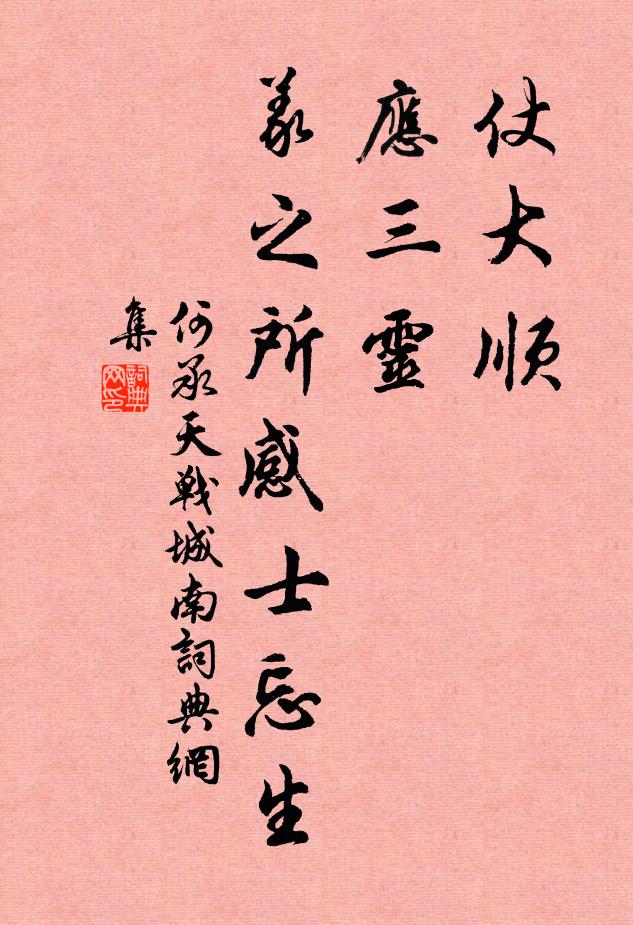 仗大順
應三靈
義之所感士忘生
何承天戰城南詞典網
集
詞典
网印